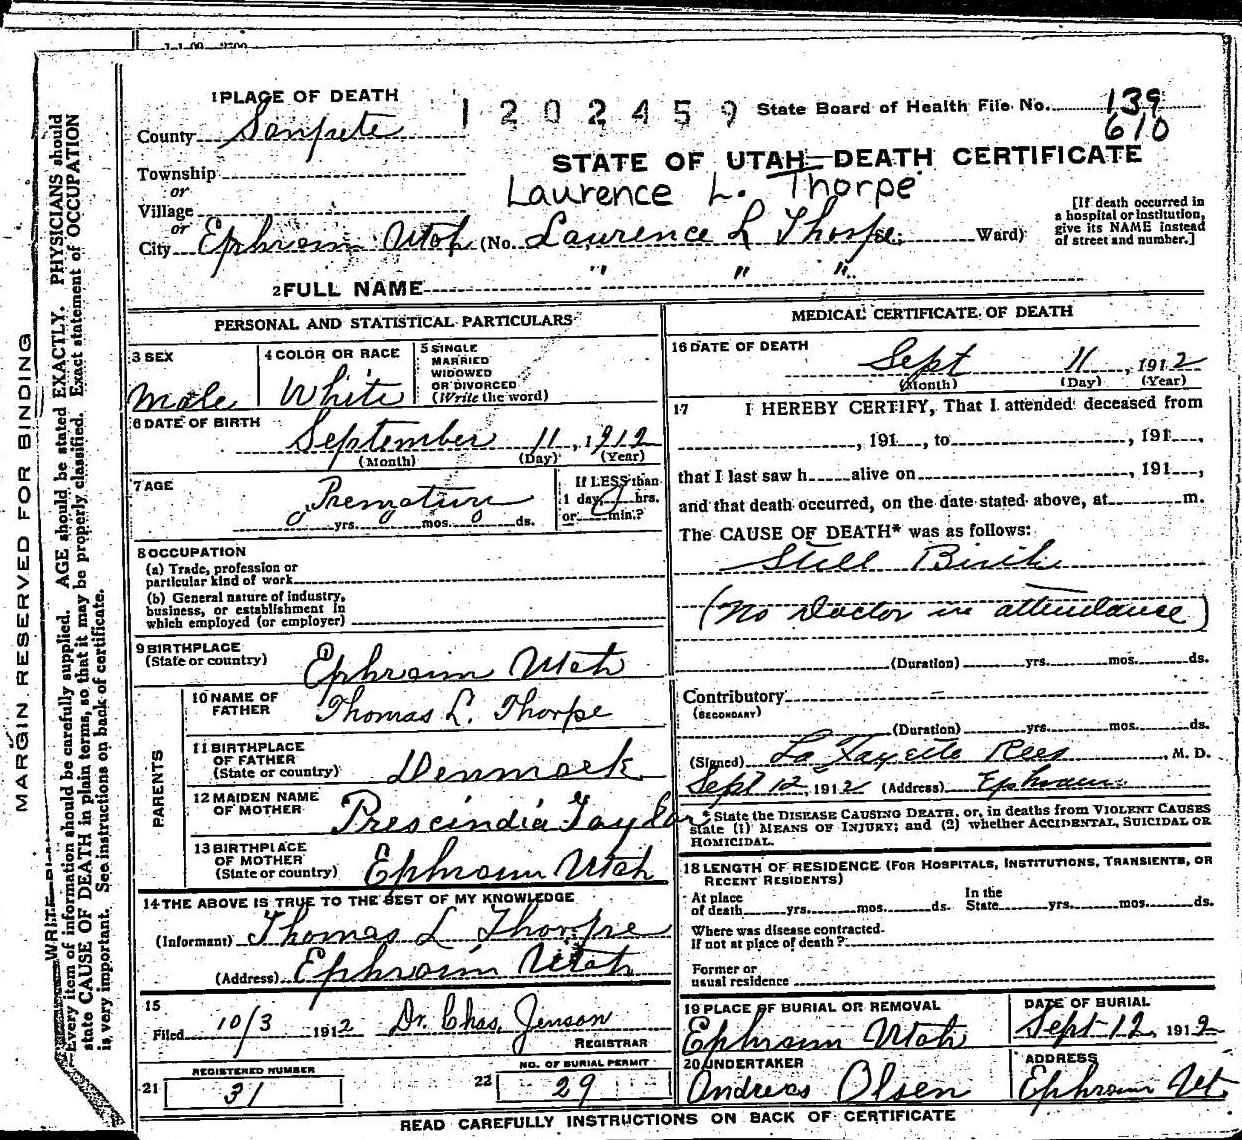 1 PLACE OF DEATH
1202459 State Board of Health File No. 139
610
County Sanpete
STATE OF UTAH—DEATH CERTIFICATE
Township
or
Laurence L. Thorpe
Village
or
[If death occurred in a hospital or institution, give its NAME instead of street and number.]
City Ephraim Utah (No. Laurence L Thorpe. Ward)
2 FULL NAME " " "
PERSONAL AND STATISTICAL PARTICULARS
3 SEX
Male
4 COLOR OR RACE
White
5 SINGLE
MARRIED
WIDOWED
OR DIVORCED
(Write the word)
6 DATE OF BIRTH
September 11, 1912
(Month) (Day) (Year)
7 AGE
Premature
0 yrs. 0 mos. 0 ds.
If LESS than
1 day, 0 hrs.
or min.?
8 OCCUPATION
(a) Trade, profession or
particular kind of work
(b) General nature of industry,
business, or establishment in
which employed (or employer)
9 BIRTHPLACE
(State or country)
Ephraim Utah
PARENTS
10 NAME OF
FATHER
Thomas L. Thorpe
11 BIRTHPLACE
OF FATHER
(State or country)
Denmark
12 MAIDEN NAME
OF MOTHER
Prescindia Taylor
13 BIRTHPLACE
OF MOTHER
(State or country)
Ephraim Utah
14 THE ABOVE IS TRUE TO THE BEST OF MY KNOWLEDGE
(Informant) Thomas L Thorpe
(Address) Ephraim Utah
15
Filed 10/3 1912 Dr. Chas. Jenson
REGISTRAR
REGISTERED NUMBER
21 31
NO. OF BURIAL PERMIT
22 29
MEDICAL CERTIFICATE OF DEATH
16 DATE OF DEATH
Sept 11, 1912
(Month) (Day) (Year)
17 I HEREBY CERTIFY, That I attended deceased from
, 191 , to , 191 ,
that I last saw h alive on , 191 ,
and that death occurred, on the date stated above, at m.
The CAUSE OF DEATH* was as follows:
Still Birth
(No Doctor in attendance)
(Duration) yrs. mos. ds.
Contributory
(SECONDARY)
(Duration) yrs. mos. ds.
(Signed) La Fayette Rees, M. D.
Sept 12, 1912 (Address) Ephraim
* State the DISEASE CAUSING DEATH, or, in deaths from VIOLENT CAUSES
state (1) MEANS OF INJURY; and (2) whether ACCIDENTAL, SUICIDAL OR
HOMICIDAL.
18 LENGTH OF RESIDENCE (FOR HOSPITALS, INSTITUTIONS, TRANSIENTS, OR
RECENT RESIDENTS)
At place
of death yrs. mos. ds.
In the
State yrs. mos. ds.
Where was disease contracted
If not at place of death?
Former or
usual residence
19 PLACE OF BURIAL OR REMOVAL
Ephraim Utah
DATE OF BURIAL
Sept 12, 1912
20 UNDERTAKER
Andreas Olsen
ADDRESS
Ephraim Ut.
READ CAREFULLY INSTRUCTIONS ON BACK OF CERTIFICATE
MARGIN RESERVED FOR BINDING
Every item of information should be carefully supplied. AGE should be stated EXACTLY. PHYSICIANS should
state CAUSE OF DEATH in plain terms, so that it may be properly classified. Exact statement of OCCUPATION
is very important. See instructions on back of certificate.